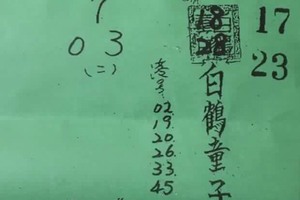 17
23
18
28
白鶴童子
港号
02.
19.
20.
26.
33.
45
7
03
(二)